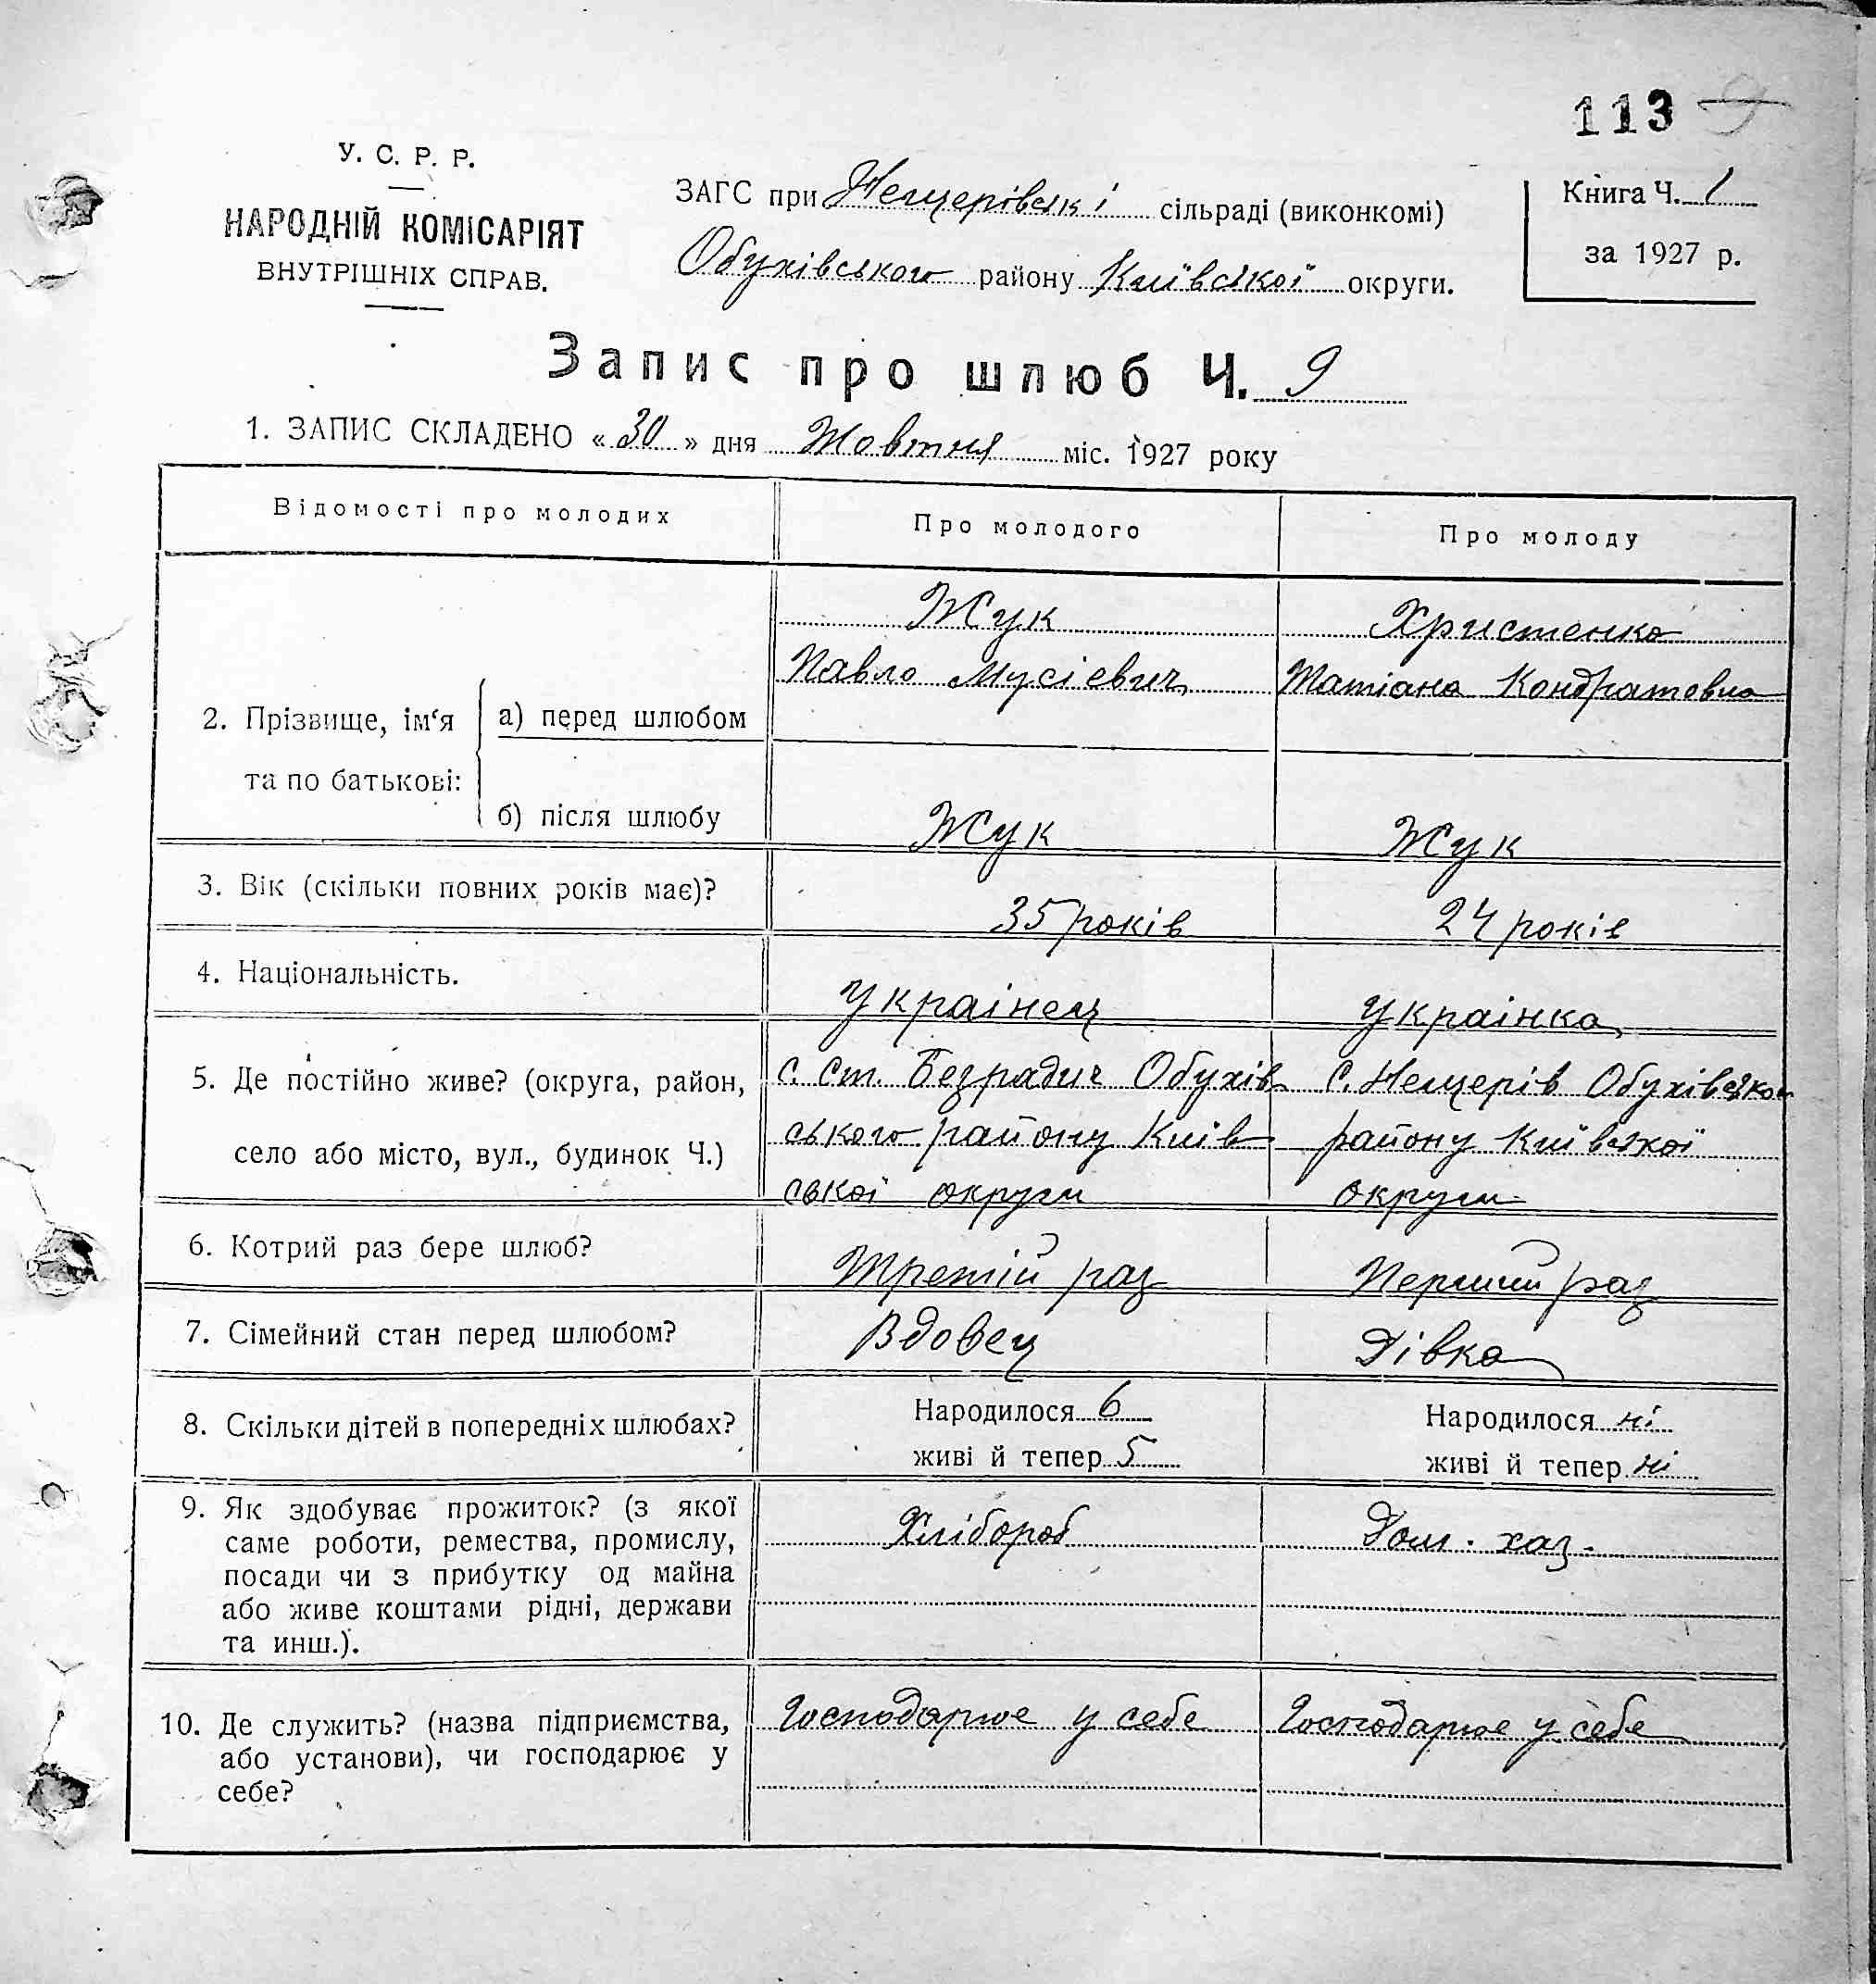 113
У. С. Р. Р.
НАРОДНІЙ КОМІСАРІЯТ
ВНУТРІШНІХ СПРАВ.
ЗАГС при Нещерівські сільраді (виконкомі)
Обухівського району Київської округи.
Книга Ч. 1
за 1927 р.
Запис про шлюб Ч. 9
1. ЗАПИС СКЛАДЕНО « 30 » дня Жовтня міс. 1927 року
Відомості про молодих
Про молодого
Про молоду
2. Прізвище, ім'я
та по батькові:
а) перед шлюбом
Жук
Павло Мусієвич
Христенко
Татіана Кондратовна
б) після шлюбу
Жук
Жук
3. Вік (скільки повних років має)?
35 років
24 років
4. Національність.
Українец
Українка
5. Де постійно живе? (округа, район,
село або місто, вул., будинок Ч.)
с. Ст. Безрадич Обухів
ського району Київ
ської округи
с. Нещерів Обухівського
району Київської
округи
6. Котрий раз бере шлюб?
Третій раз
Перший раз
7. Сімейний стан перед шлюбом?
Вдовец
Дівка
8. Скільки дітей в попередніх шлюбах?
Народилося 6
живі й тепер 5
Народилося ні
живі й тепер ні
9. Як здобуває прожиток? (з якої
саме роботи, ремества, промислу,
посади чи з прибутку од майна
або живе коштами рідні, держави
та инш.).
Хлібороб
Дом. хаз.
10. Де служить? (назва підприємства,
або установи), чи господарює у
себе?
Господарює у себе
Господарює у себе